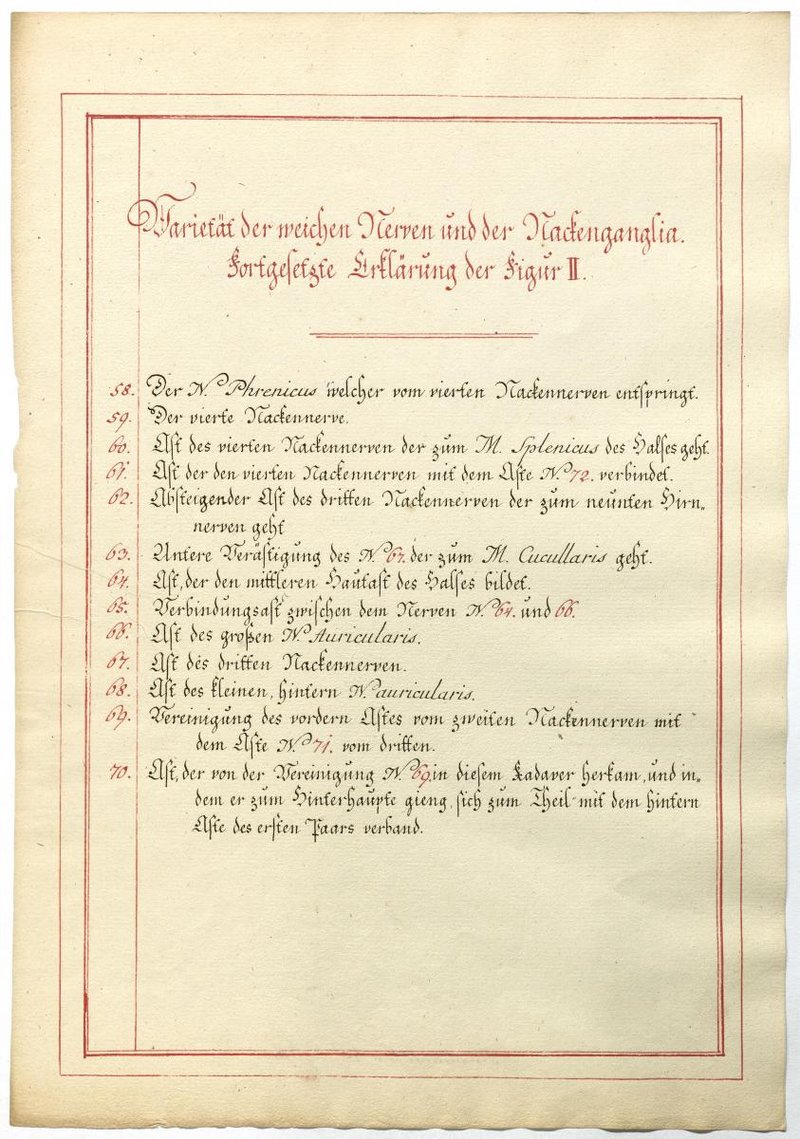 Varietät der weichen Nerven und der Nackenganglia.
Fortgesetzte Erklärung der Figur II.
58. Der N. Phrenicus welcher vom vierten Nackennerven entspringt.
59. Der vierte Nackennerve.
60. Ast des vierten Nackennerven der zum M. Splenicus des Halses geht.
61. Ast der den vierten Nackennerven mit dem Aste No. 72. verbindet.
62. Absteigender Ast des dritten Nackennerven der zum neunten Hirn„
nerven geht
63. Untere Verästigung des No. 67. der zum M. Cucullaris geht.
64. Ast, der den mittleren Hautast des Halses bildet.
65. Verbindungsast zwischen dem Nerven No. 64. und 66.
66. Ast des großen N. Auricularis.
67. Ast des dritten Nackennerven.
68. Ast des kleinen, hintern N. auricularis.
69. Vereinigung des vordern Astes vom zweiten Nackennerven mit
dem Aste No. 71. vom dritten.
70. Ast, der von der Vereinigung No. 69. in diesem Kadaver herkam, und in„
dem er zum Hinterhaupte gieng, sich zum Theil mit dem hintern
Aste des ersten Paars verband.